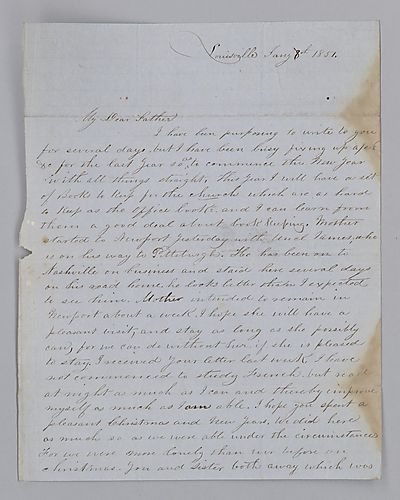 Louisville Jany 8th 1851.
My Dear Father
I have been purposing to write to you
for several days, but I have been busy fixing up a/cs
&c for the last Year so as to commence the New Year
with all things straight, this Year I will have a set
of Books to keep for the church which are as hard
to keep as the office books and I can learn from
them a good deal about book keeping. Mother
started to Newport yesterday with Uncle James, who
is on his way to Pittsburgh. He has been on to
Nashville on business and staid here several days
on his road home he looks better than I expected
to see him. Mother intended to remain in
Newport about a week I hope she will have a
pleasant visit, and stay as long as she possibly
can, for we can do without her if she is pleased
to stay, I received Your letter last week I have
not commenced to study French. but read
at night as much as I can and thereby improve
myself as much as I am able. I hope you spent a
pleasant Christmas and New Years, We did here
as much so as we were able under the circumstances
For we were more lonely than ever before on
Christmas. You and Sister both away which was